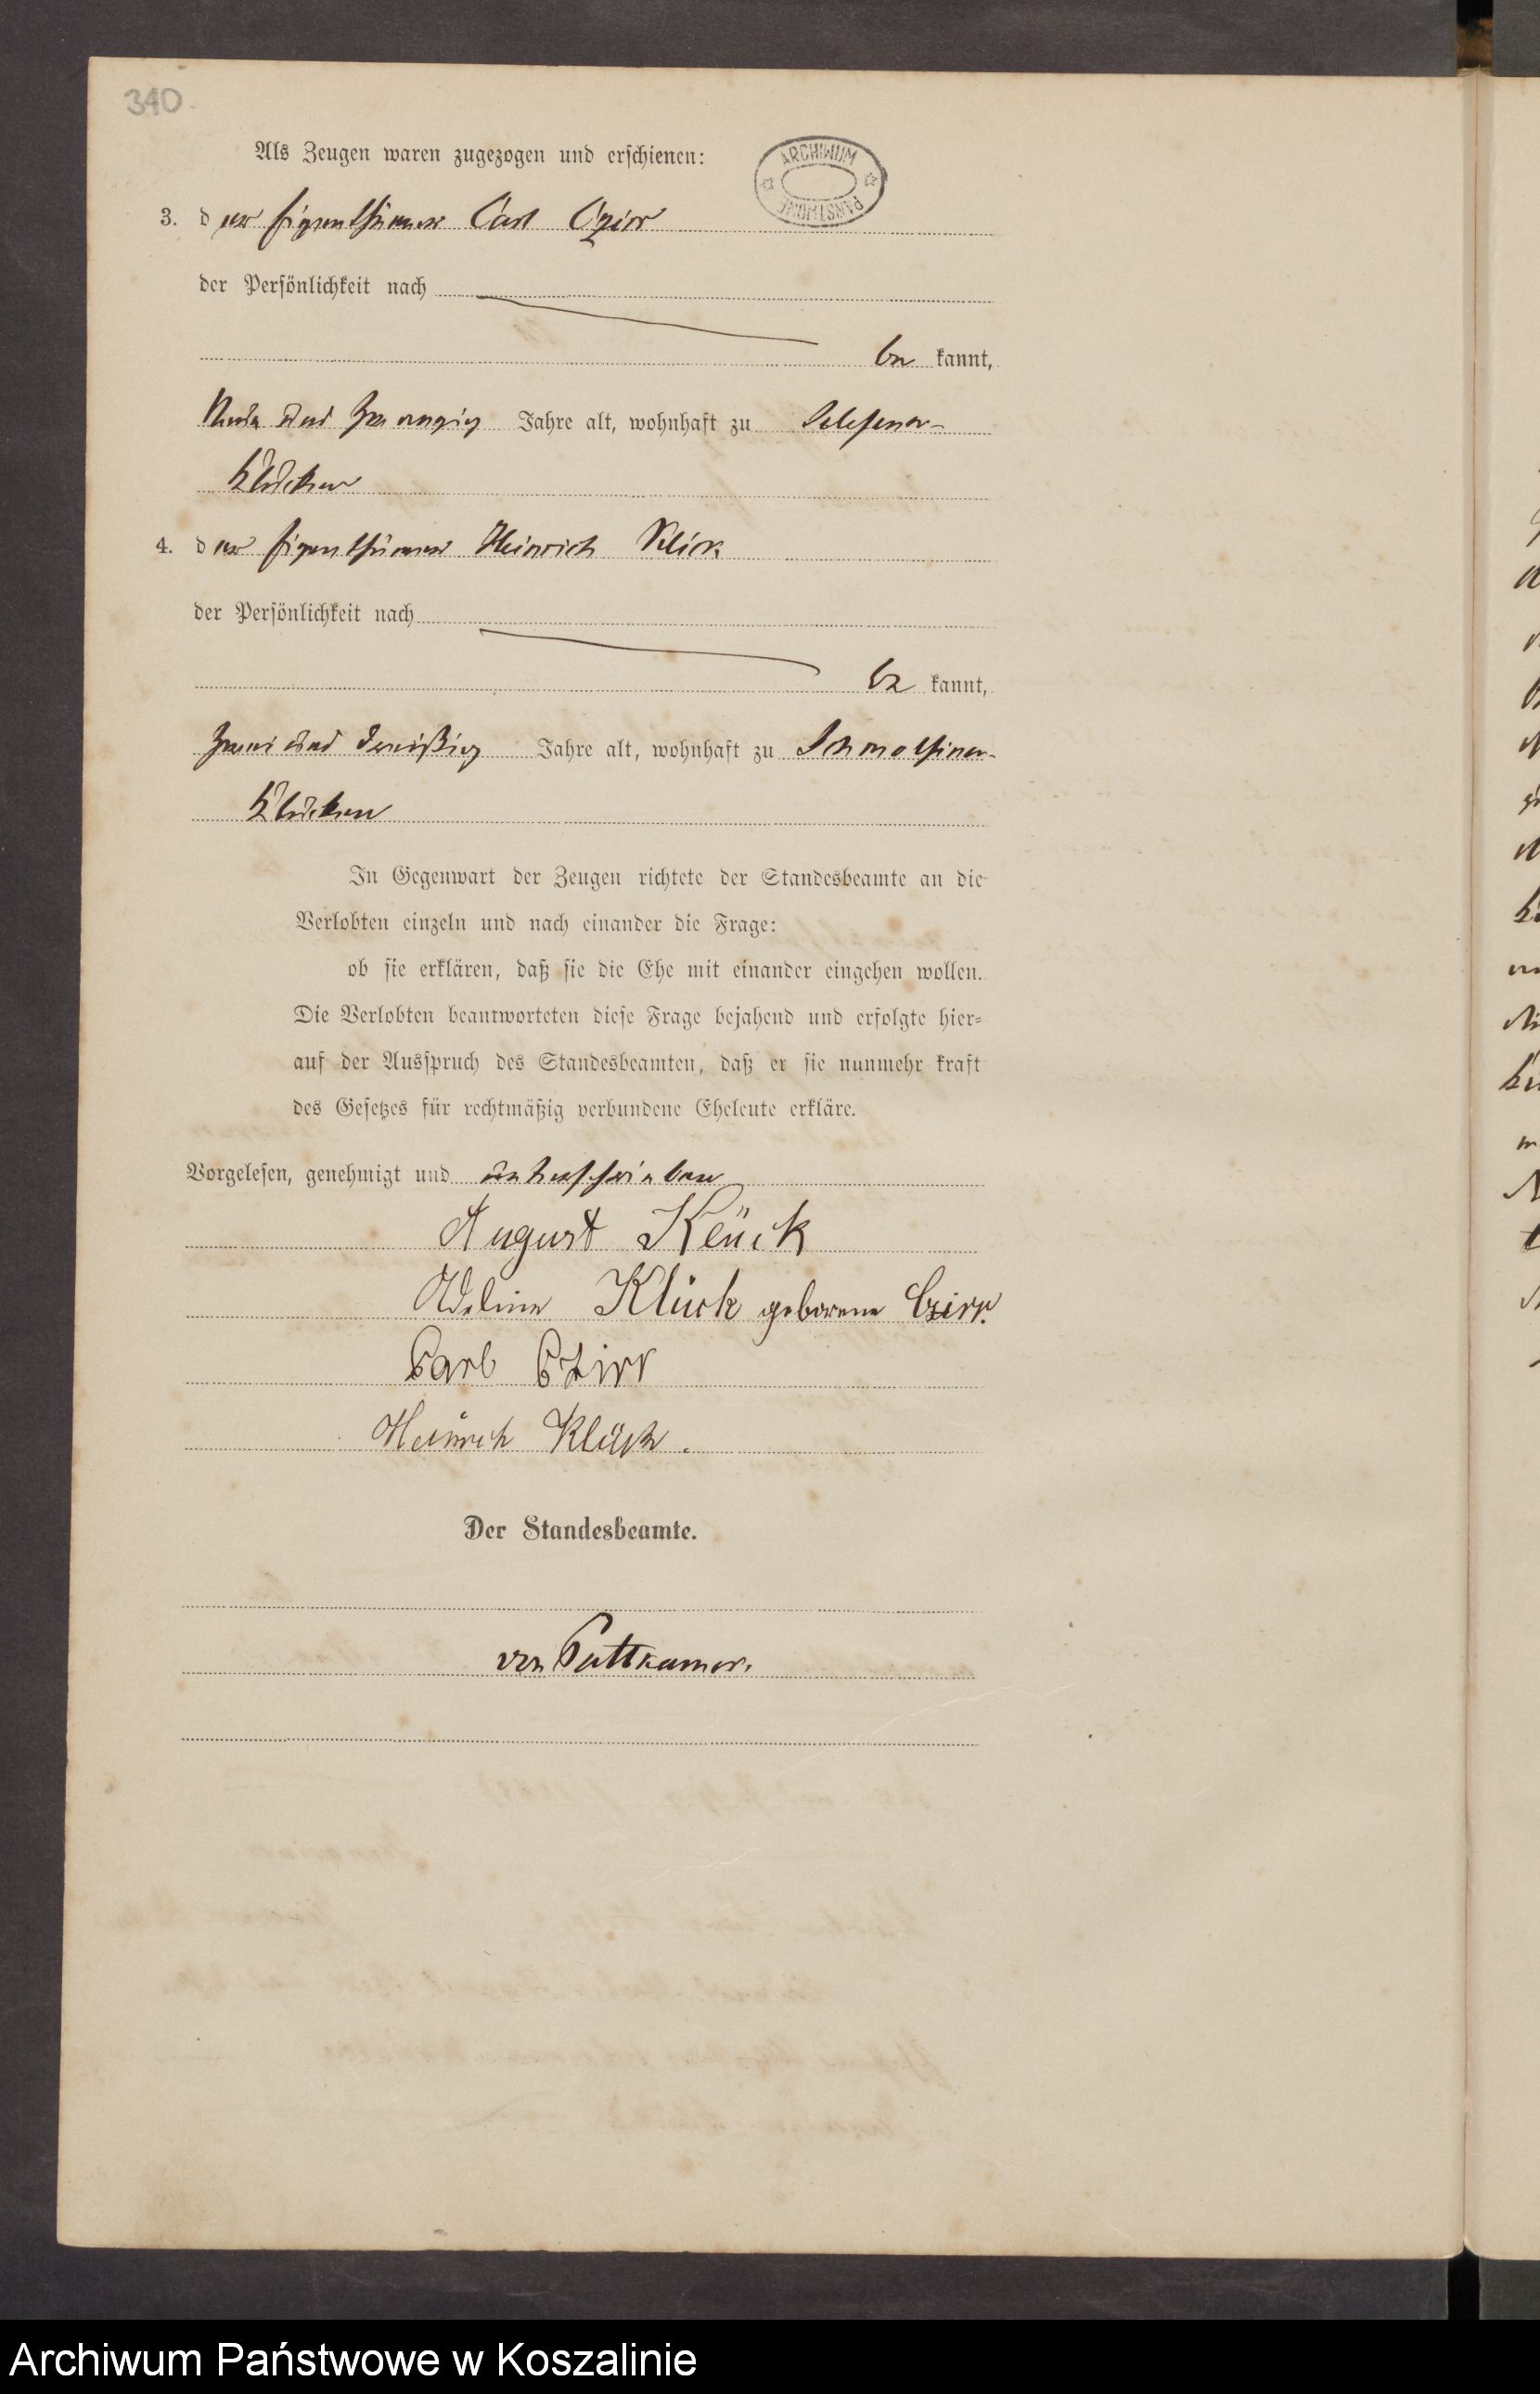 340.
Als Zeugen waren zugezogen und erschienen:
ARCHIWUM PAŃSTWOWE
3. der Eigenthümer Carl Czirr
der Persönlichkeit nach
be kannt,
und zwanzig Jahre alt, wohnhaft zu Selesener-
Klücken
4. der Eigenthümer Heinrich Klück
der Persönlichkeit nach
be kannt,
zwei und dreißig Jahre alt, wohnhaft zu Schmolsiner-
Klücken
In Gegenwart der Zeugen richtete der Standesbeamte an die
Verlobten einzeln und nach einander die Frage:
ob sie erklären, daß sie die Ehe mit einander eingehen wollen.
Die Verlobten beantworteten diese Frage bejahend und erfolgte hier-
auf der Ausspruch des Standesbeamten, daß er sie nunmehr kraft
des Gesetzes für rechtmäßig verbundene Eheleute erkläre.
Vorgelesen, genehmigt und unterschrieben
August Klück
Adeline Klück geborene Czirr.
Carl Czirr
Heinrich Klück.
Der Standesbeamte.
von Puttkamer.
Archiwum Państwowe w Koszalinie